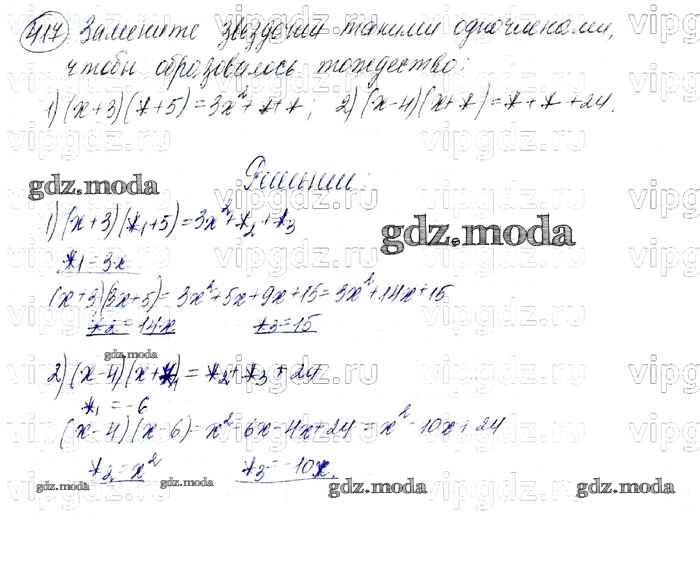 417 Замените звездочки такими одночленами,
чтобы образовалось тождество:
1) (x+3)(*+5)=3x²+*+*; 2) (x-4)(x+*)=*+*+24.
Решение:
gdz.moda
1) (x+3)(*₁+5)=3x²+*₂+*₃
gdz.moda
*₁=3x
(x+3)(3x+5)=3x²+5x+9x+15=3x²+14x+15
*₂=14x *₃=15
gdz.moda
2) (x-4)(x+*₁)=*₂+*₃+24
*₁=-6
(x-4)(x-6)=x²-6x-4x+24=x²-10x+24
*₂=x² *₃=-10x.
gdz.moda gdz.moda gdz.moda
vipgdz.ru